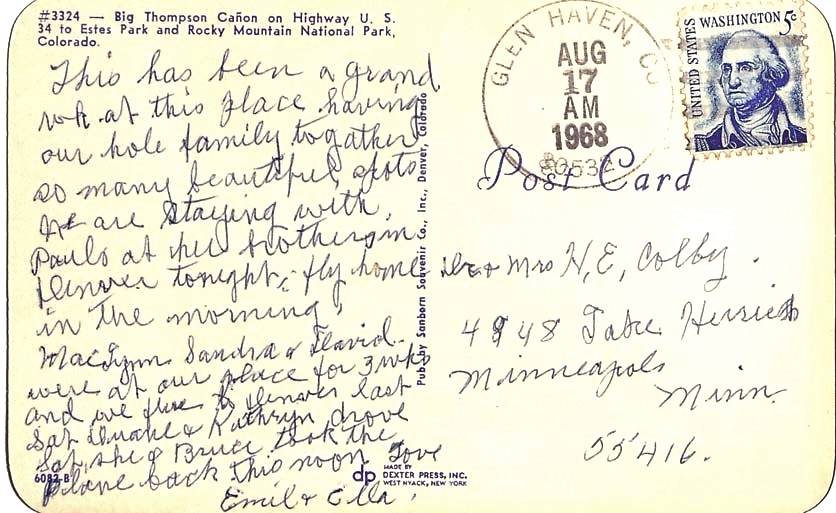 #3324 — Big Thompson Cañon on Highway U. S.
34 to Estes Park and Rocky Mountain National Park,
Colorado.
This has been a grand
wk. at this place having
our hole family together
so many beautiful spots
We are staying with
Pauls at her brothers in
Denver tonight, fly home
in the morning,
MacLynn Sandra & David
were at our place for 3 wks
and we flew to Denver last
Sat Duane & Kathryn drove
Sat, she & Bruce took the
plane back this noon Love
Emil & Ella.
6082-B
Pub. by Sanborn Souvenir Co., Inc., Denver, Colorado
dp
MADE BY
DEXTER PRESS, INC.
WEST NYACK, NEW YORK
GLEN HAVEN, CO
AUG
17
AM
1968
80532
UNITED STATES
WASHINGTON 5c
Post Card
Dr & Mrs H, E, Colby.
4848 Lake Herrick
Minneapolis
Minn.
55416.